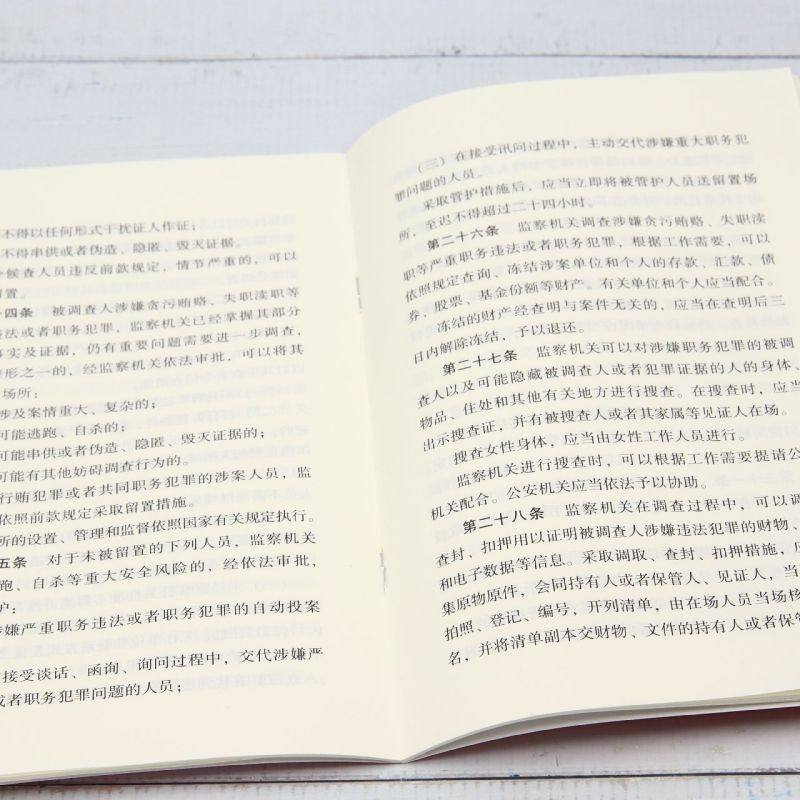 不得以任何形式干扰证人作证;
不得串供或者伪造、隐匿、毁灭证据。
候查人员违反前款规定,情节严重的,可以
留置。
十四条 被调查人涉嫌贪污贿赂、失职渎职等
法或者职务犯罪,监察机关已经掌握其部分
事实及证据,仍有重要问题需要进一步调查,
情形之一的,经监察机关依法审批,可以将其
场所:
涉及案情重大、复杂的;
可能逃跑、自杀的;
可能串供或者伪造、隐匿、毁灭证据的;
可能有其他妨碍调查行为的。
行贿犯罪或者共同职务犯罪的涉案人员,监
依照前款规定采取留置措施。
所的设置、管理和监督依照国家有关规定执行。
五条 对于未被留置的下列人员,监察机关
跑、自杀等重大安全风险的,经依法审批,
护:
涉嫌严重职务违法或者职务犯罪的自动投案
接受谈话、函询、询问过程中,交代涉嫌严
或者职务犯罪问题的人员;
(三)在接受讯问过程中,主动交代涉嫌重大职务犯
罪问题的人员。
采取管护措施后,应当立即将被管护人员送留置场
所,至迟不得超过二十四小时。
第二十六条 监察机关调查涉嫌贪污贿赂、失职渎
职等严重职务违法或者职务犯罪,根据工作需要,可以
依照规定查询、冻结涉案单位和个人的存款、汇款、债
券、股票、基金份额等财产。有关单位和个人应当配合。
冻结的财产经查明与案件无关的,应当在查明后三
日内解除冻结,予以退还。
第二十七条 监察机关可以对涉嫌职务犯罪的被调
查人以及可能隐藏被调查人或者犯罪证据的人的身体、
物品、住处和其他有关地方进行搜查。在搜查时,应当
出示搜查证,并有被搜查人或者其家属等见证人在场。
搜查女性身体,应当由女性工作人员进行。
监察机关进行搜查时,可以根据工作需要提请公
机关配合。公安机关应当依法予以协助。
第二十八条 监察机关在调查过程中,可以调
查封、扣押用以证明被调查人涉嫌违法犯罪的财物、
和电子数据等信息。采取调取、查封、扣押措施,应
集原物原件,会同持有人或者保管人、见证人,当
拍照、登记、编号,开列清单,由在场人员当场核
名,并将清单副本交财物、文件的持有人或者保管